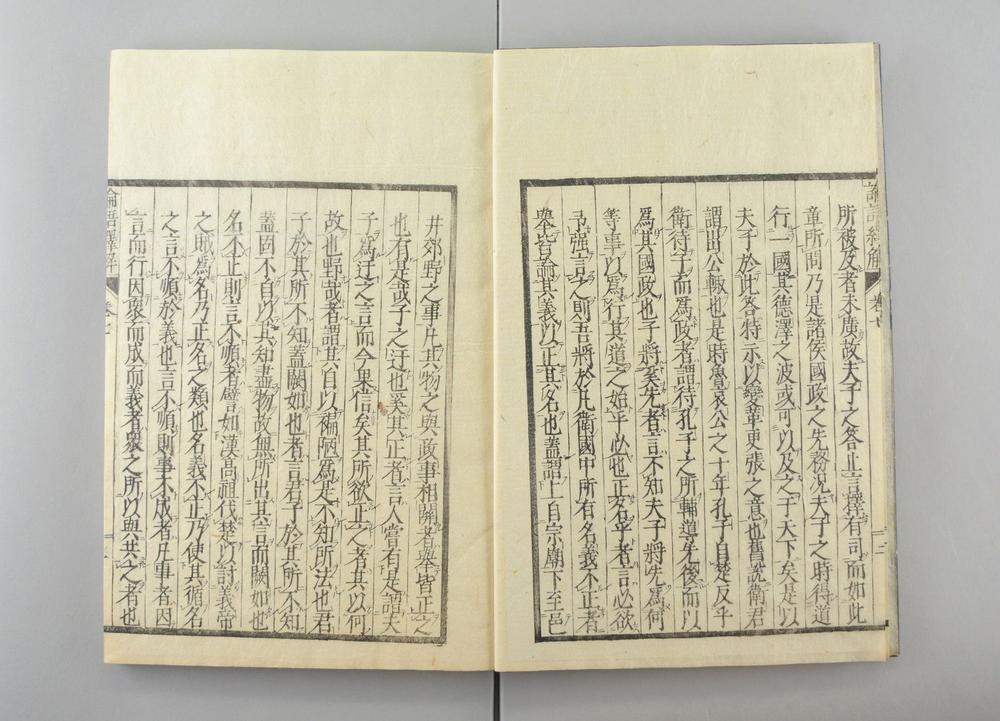 論語繹解 卷七 二
所彼及者未廣故夫子之答止言擇有司而如此
童所問乃是諸侯國政之先務況夫子之時得道
行一國其德澤之波或可以及之于天下矣是以
夫子於此答特示以變革更張之意也舊說衛君
謂出公輒也是時魯哀公之十年孔子自楚反乎
衛待子而爲政者謂待孔子之所輔導先後而以
爲其國政也子將奚先者言不知夫子將先爲何
等事以爲行其道之始乎必也正名乎者言必欲
予強言之則吾將於凡衛國中所有名義不正者
舉皆論其義以正其名也蓋謂上自宗廟下至邑
井郊野之事凡其物之與政事相關者舉皆正之
也有是哉子之迂也奚其正者言人嘗有是謂夫
子爲迂之言而今果信矣其所欲正之者其以何
故也野哉者謂其自以褊陋爲是不知所法也君
子於其所不知蓋闕如也者言君子於其所不知
蓋固不自以其知盡物故無所出其言而闕如也
名不正則言不順者譬如漢高祖代楚以討義帝
之賊爲名乃正名之類也名義不正乃使其循名
之言不順於義也言不順則事不成者凡事者因
言而行因衆而成而義者衆之所以與共之者也
論語繹解 卷七